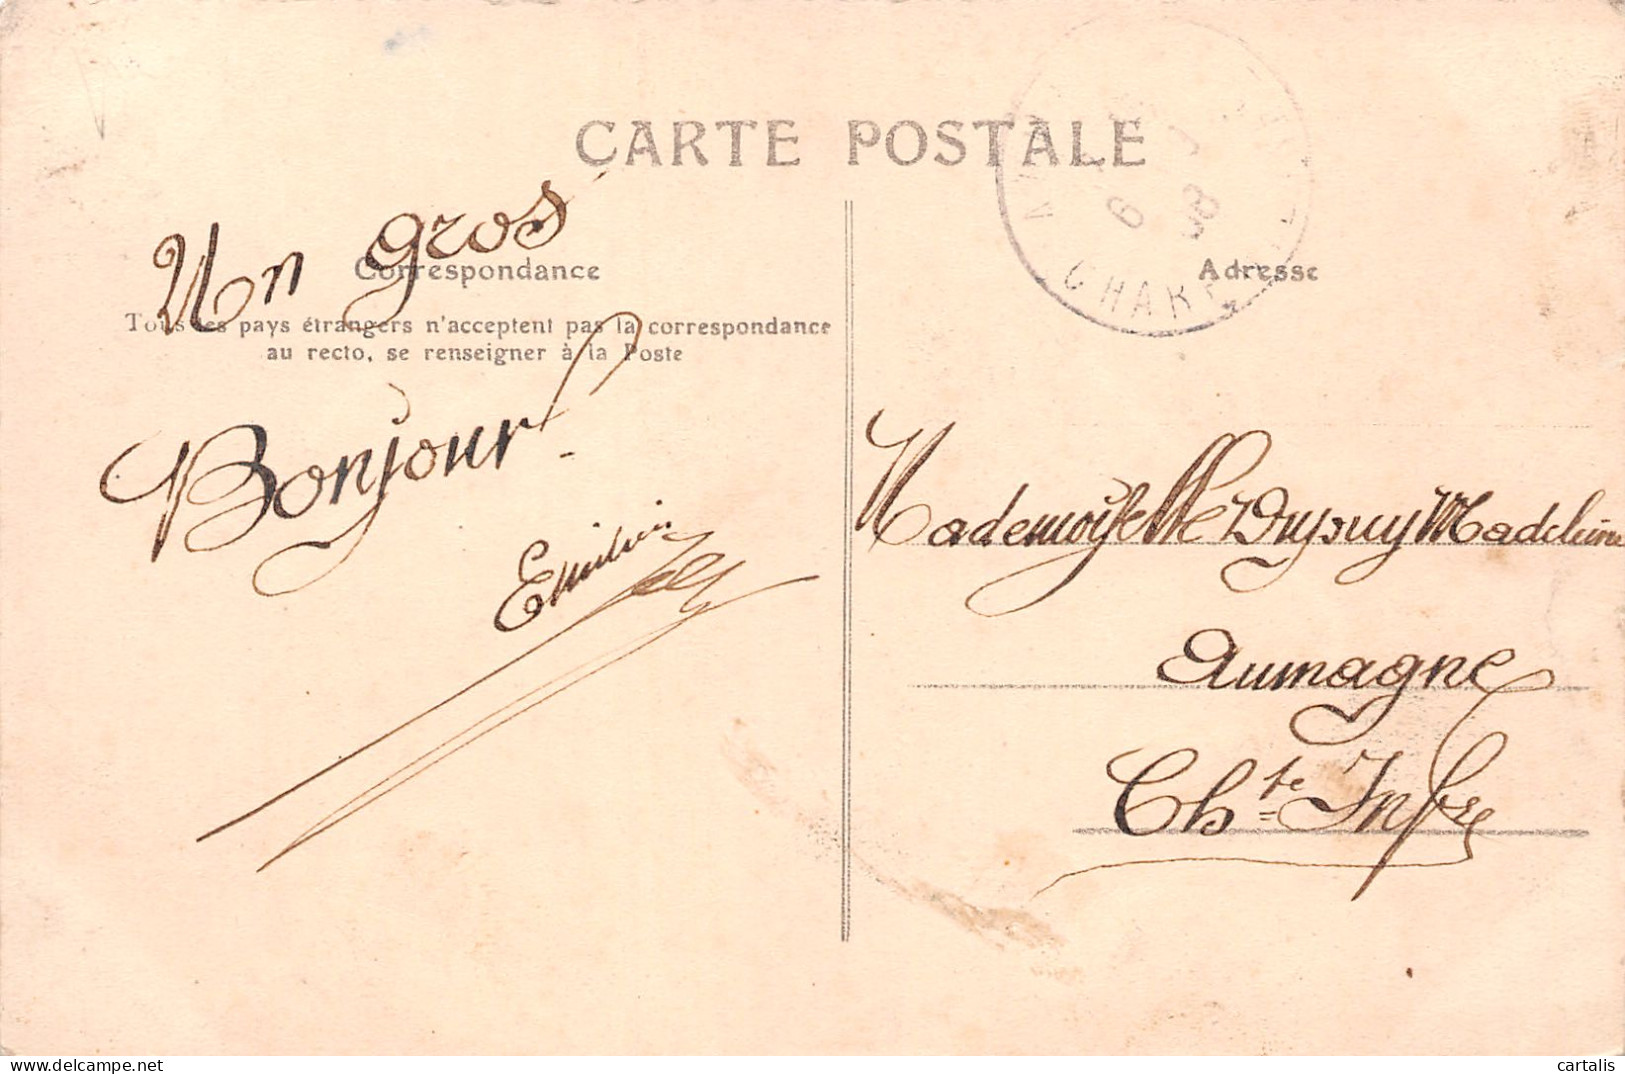 CARTE POSTALE
Un gros
Correspondance
Tous les pays étrangers n'acceptent pas la correspondance
au recto, se renseigner à la Poste
Bonjour
Adresse
Mademoiselle Dupuy Madeleine
Aumagne
Ch.te Infre
cartalis